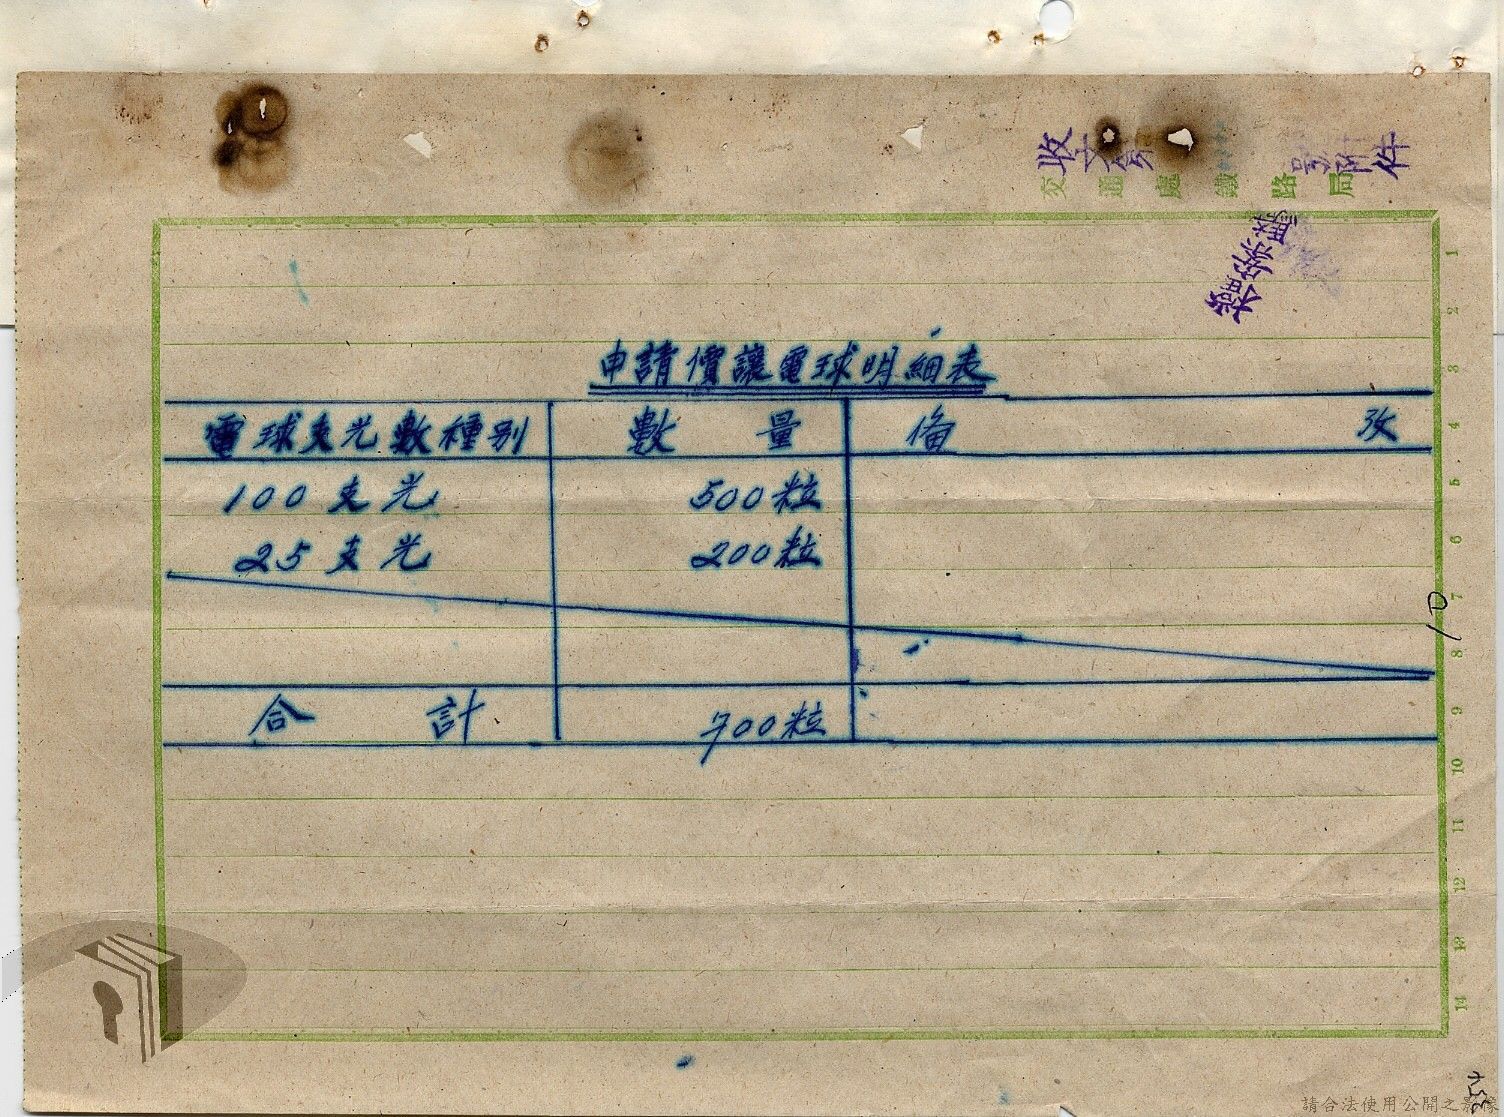 收文 號附件
交通處鐵路局
1
2
申請價讓電球明細表
3
電球支光數種別 數量 備攷
4
100支光 500粒
5
25支光 200粒
6
7
10
8
合計 700粒
9
10
11
12
13
14
請合法使用公開之影像